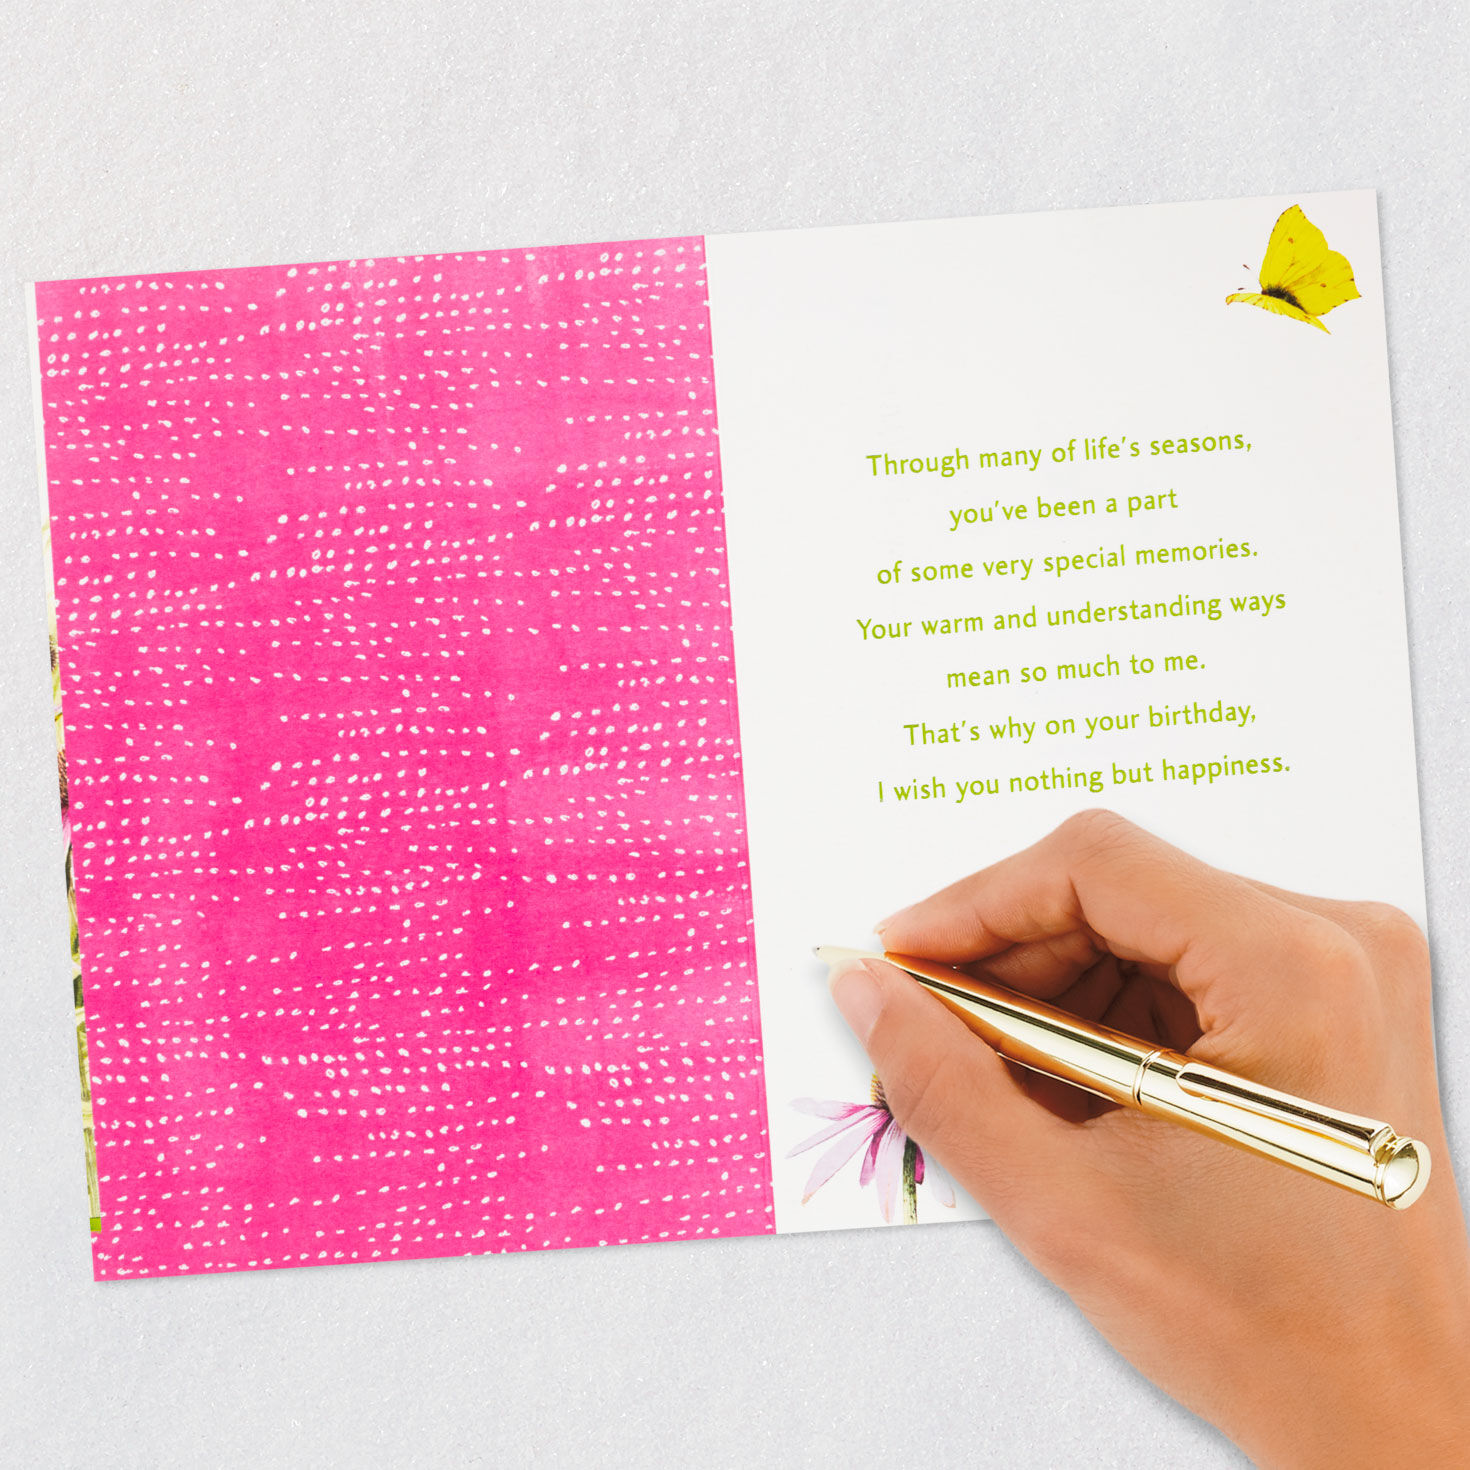 Through many of life's seasons,
you've been a part
of some very special memories.
Your warm and understanding ways
mean so much to me.
That's why on your birthday,
I wish you nothing but happiness.